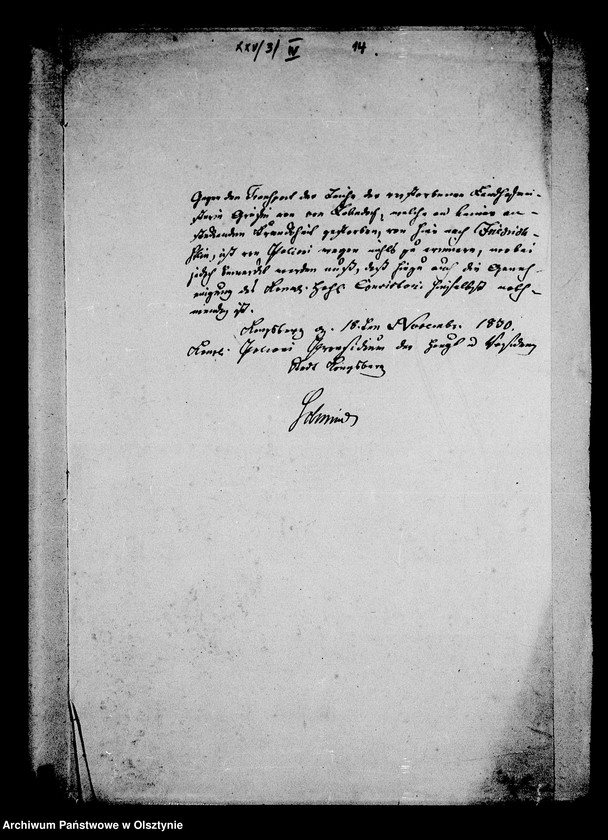 XXV/3/IV 14.
Gegen den Transport der Leiche der verstorbenen Landhofmei-
sterin Gräfin von, welche an keiner an-
steckenden Krankheit gestorben, von hier nach Friedrich-
stein, ist von Polizei wegen nichts zu erinnern, wobei
jedoch bemerkt werden muß, daß hiezu auch die Geneh-
migung des Königl. Hohen Consistorii hieselbst noth-
wendig ist.
Königsberg d. 18ten November 1830.
Königl. Polizei Praesidium der Haupt u Residenz
Stadt Königsberg
Schmidt
Archiwum Państwowe w Olsztynie